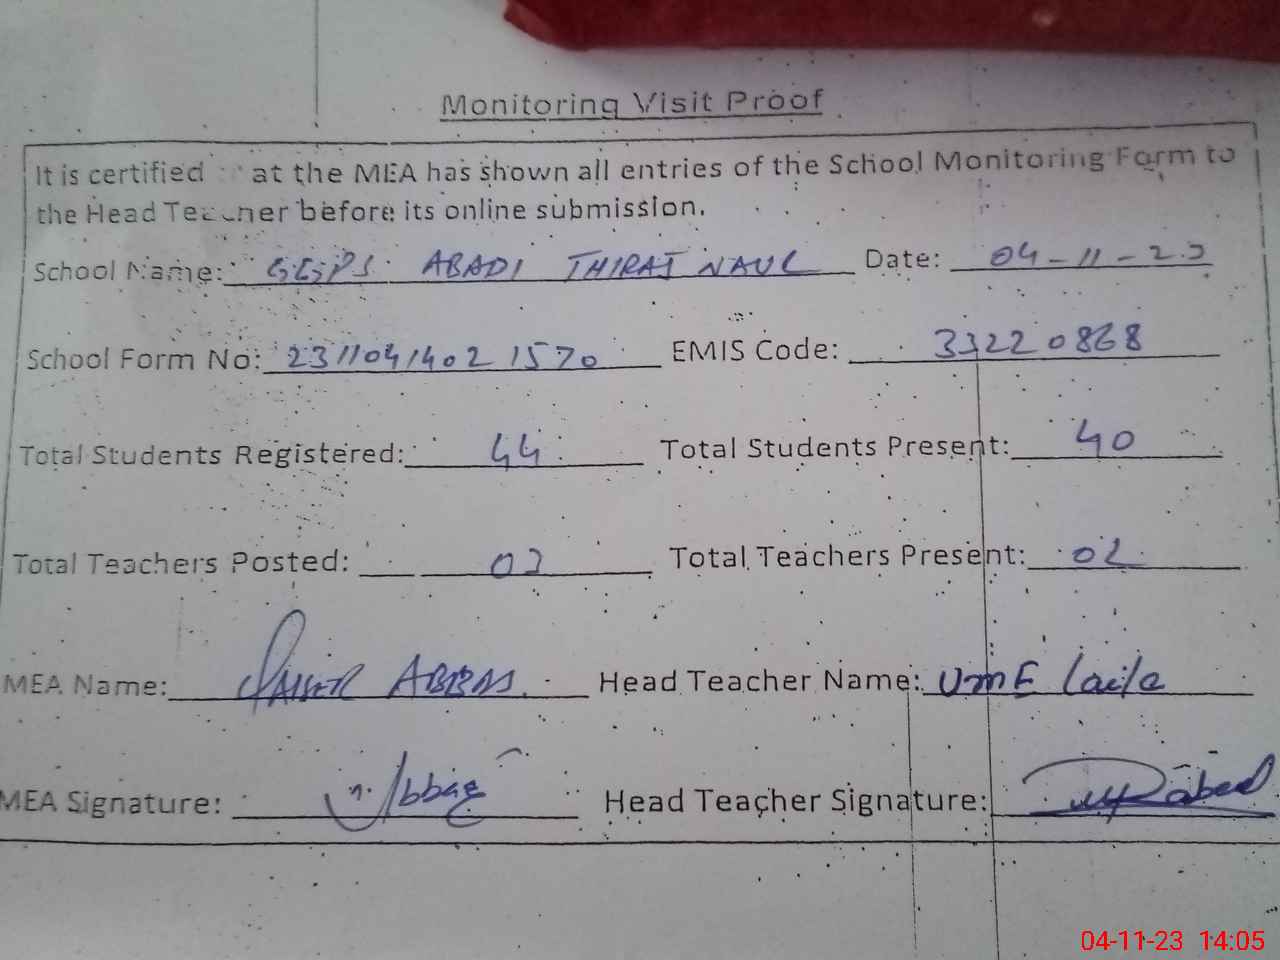 Monitoring Visit Proof
It is certified at the MEA has shown all entries of the School Monitoring Form to
the Head Teacher before its online submission.
School Name: GGPS ABADI THIRAJ NAUL Date: 04-11-23
School Form No: 23110414021570 EMIS Code: 33220868
Total Students Registered: 44 Total Students Present: 40
Total Teachers Posted: 02 Total Teachers Present: 02
MEA Name: QAISER ABBAS Head Teacher Name: UmE Laila
MEA Signature: Abbas Head Teacher Signature:
04-11-23 14:05